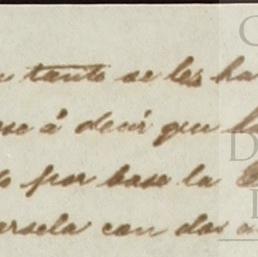 tanto se les ha
ese á decir que
por base la
ersela con dos